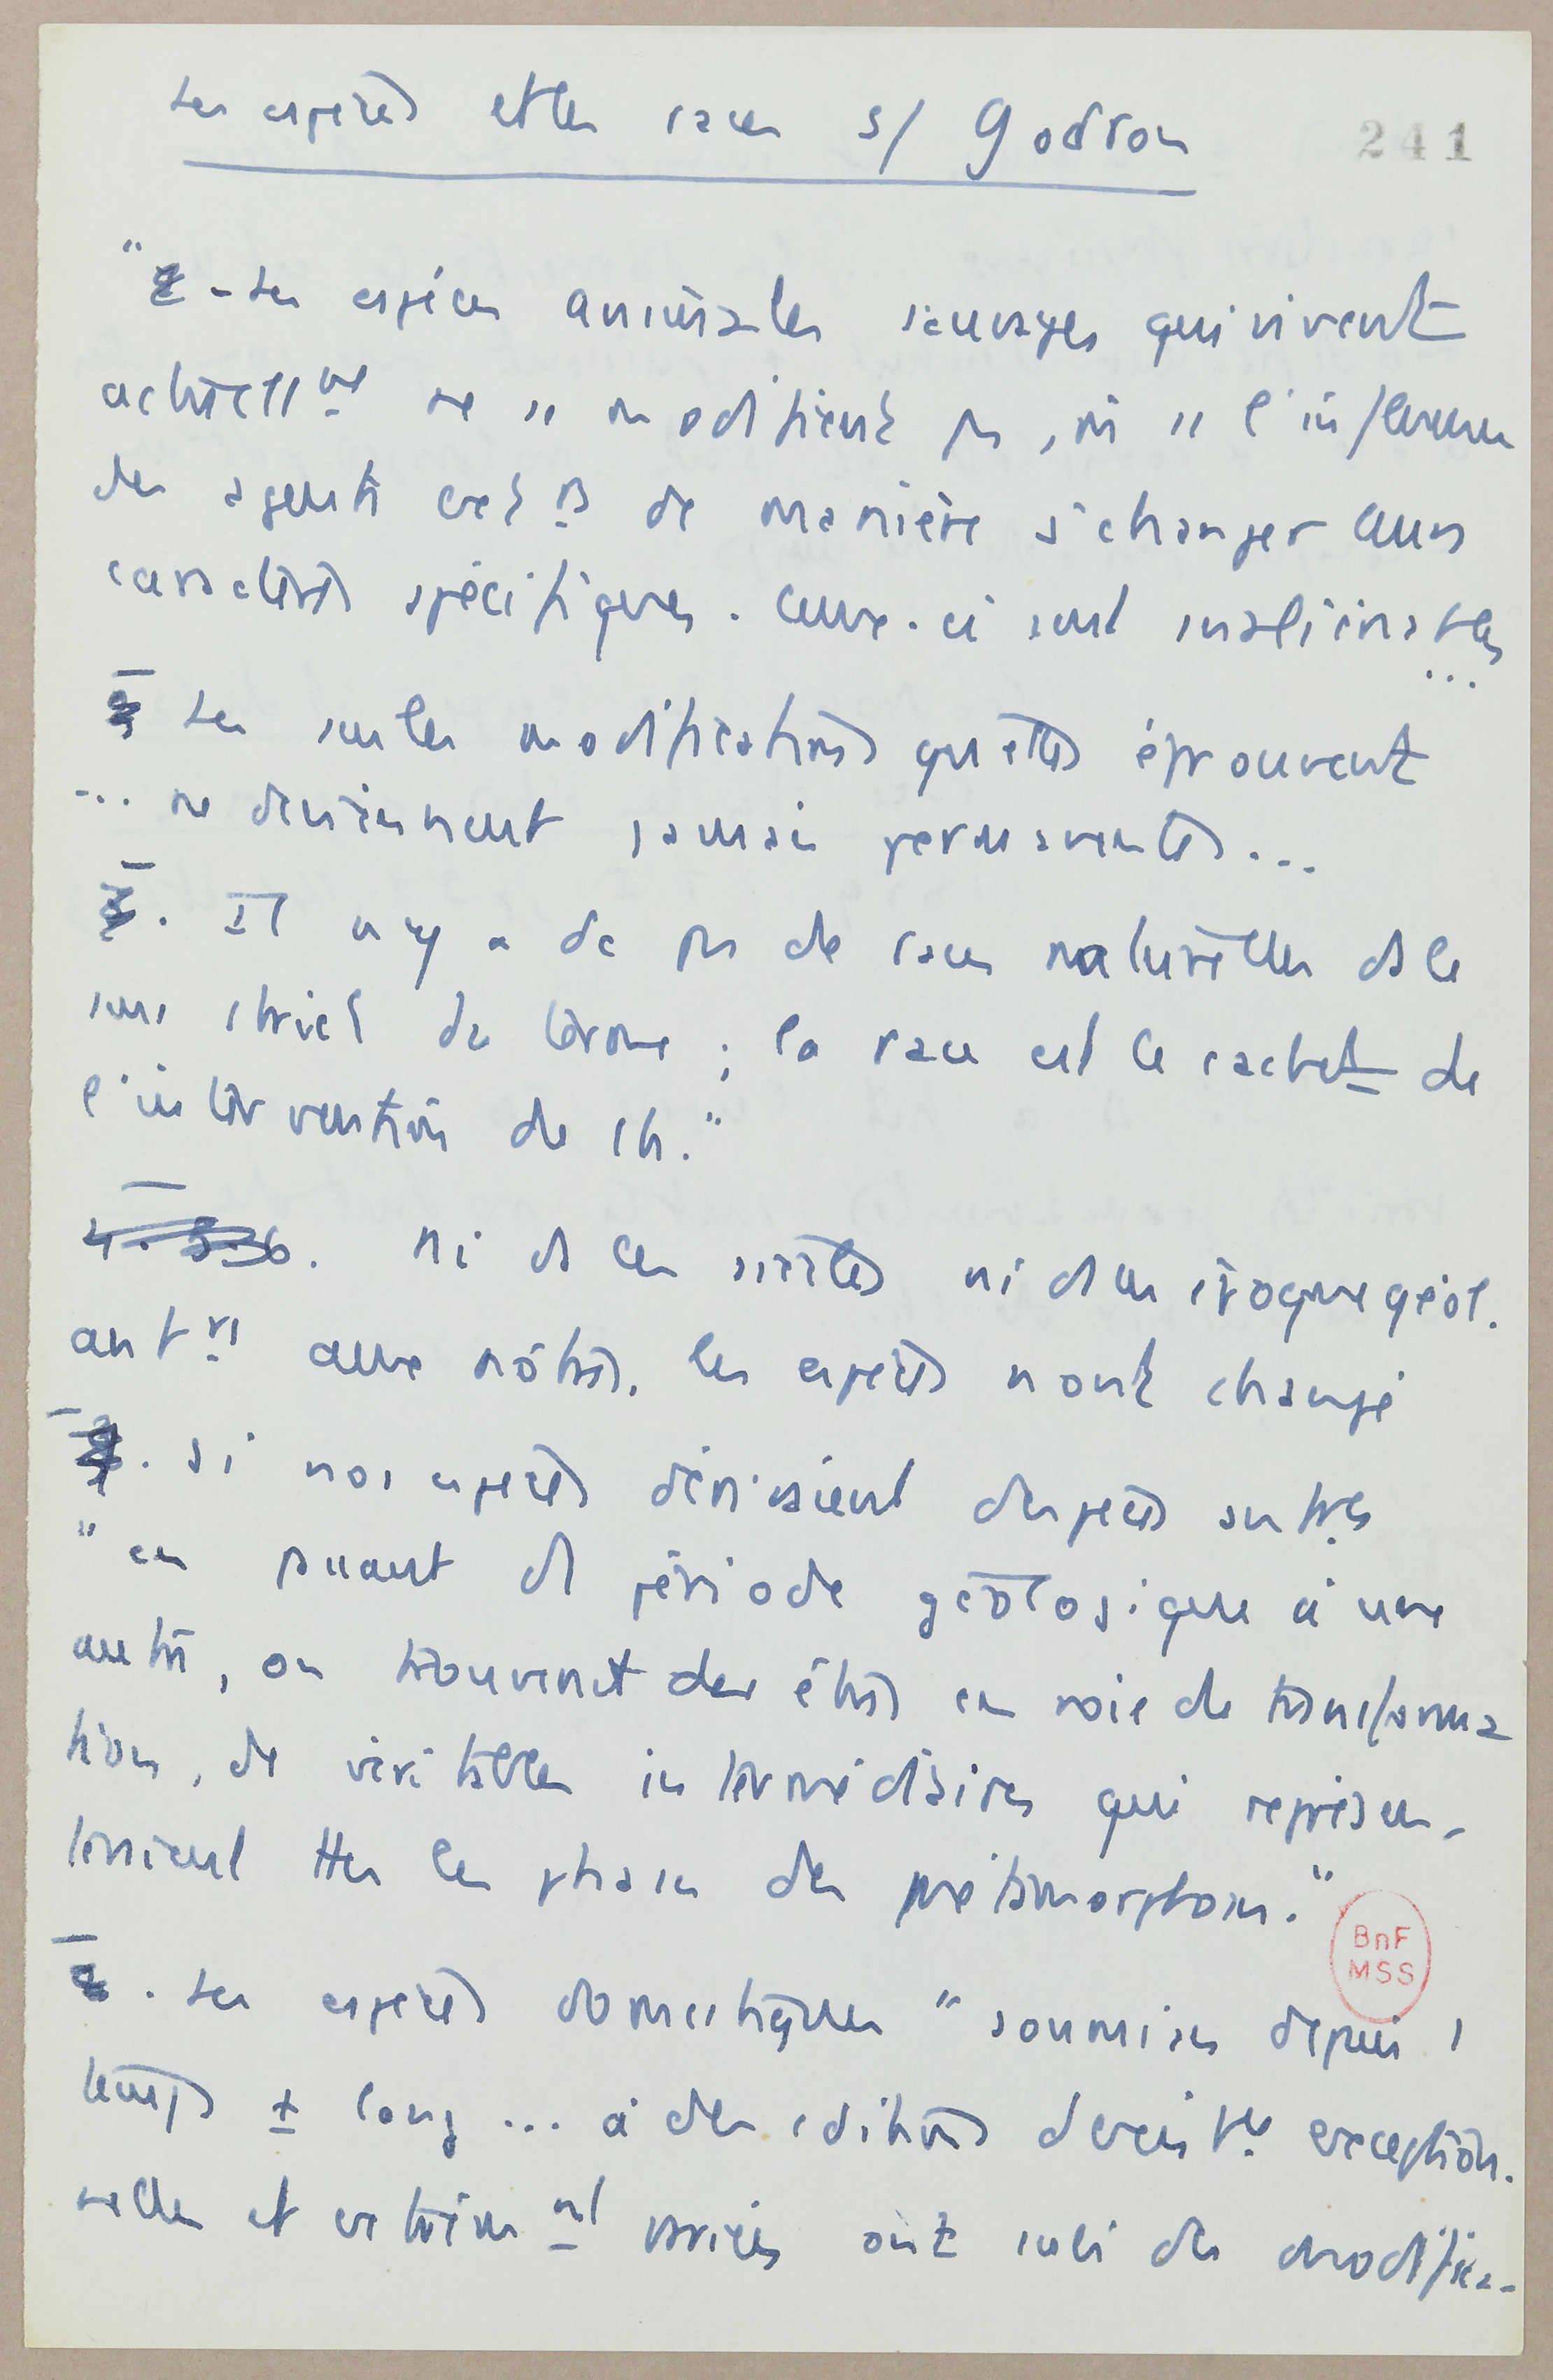 Les espèces et les races s/ Godron
241
" - Les espèces animales sauvages qui vivent
actuell^nt ne se modifient pas, ni ss l'influence
des agents ext^rs de manière à changer leurs
caractères spécifiques. Ceux-ci sont inaliénables
...
Les seules modifications qu'elles éprouvent
... ne deviennent jamais permanentes...
. Il n'y a dc pas de races naturelles ds le
sens strict du terme ; la race est le cachet de
l'intervention de l'h."
4. 5. 6. Ni ds les siècles ni ds les époques géol.
ant^rs aux nôtres, les espèces n'ont changé
. Si nos espèces dérivaient d'espèces antres
" en passant d' période géologique à une
autre, on trouverait des êtres en voie de transforma
tion, de véritables intermédiaires qui représen-
teraient ttes les phases des métamorphoses."
BnF
MSS
. Les espèces domestiques " soumises depuis 1
temps ± long ... à des cditions d'existce exception.
nelles et extrêm^nt variées ont subi des modifica-